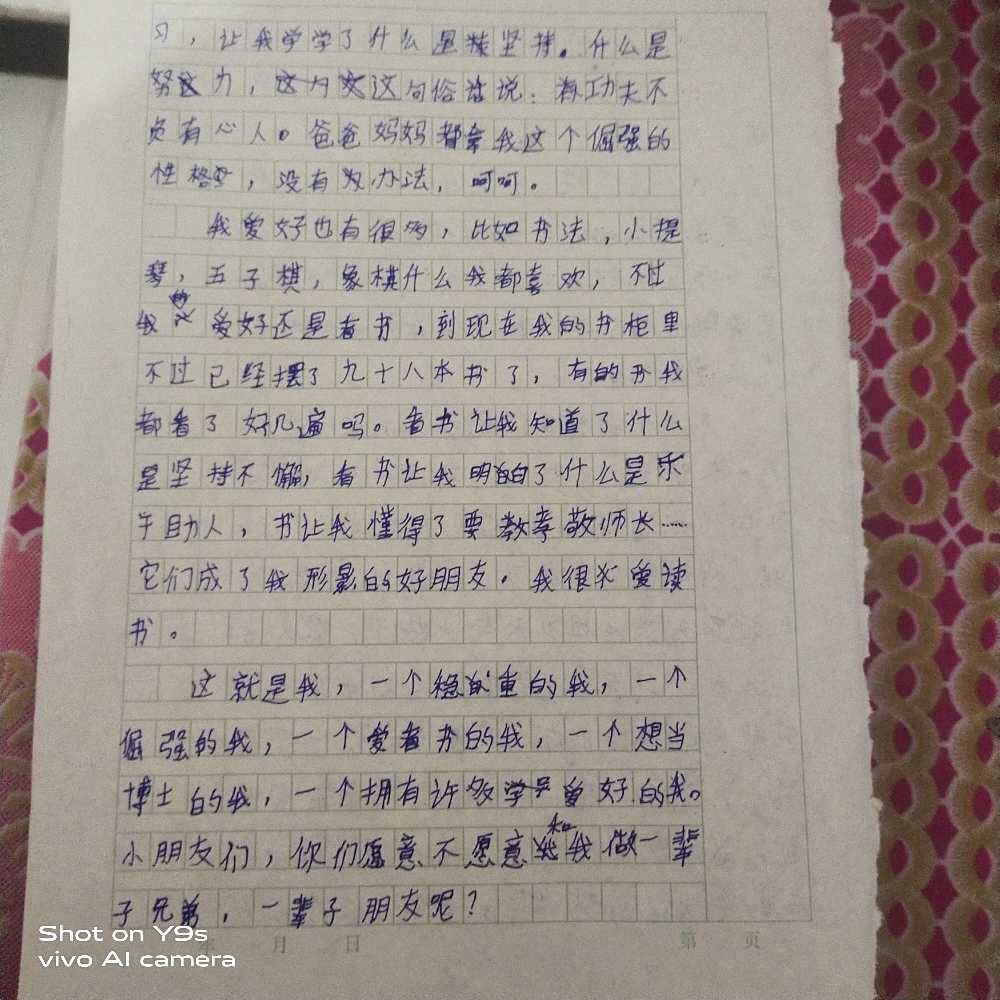 习，让我学学了什么是坚持。什么是
努力，这句俗话说：有功夫不
负有心人。爸爸妈妈都拿我这个倔强的
性格，没有办法，呵呵。
我爱好也有很多，比如书法，小提
琴，五子棋，象棋什么我都喜欢，不过
我的爱好还是看书，到现在我的书柜里
不过已经摆了九十八本书了，有的书我
都看了好几遍吗。看书让我知道了什么
是坚持不懈，看书让我明白了什么是乐
于助人，书让我懂得了要孝敬师长……
它们成了我形影的好朋友。我很爱读
书。
这就是我，一个稳重的我，一个
倔强的我，一个爱看书的我，一个想当
博士的我，一个拥有许多爱好的我。
小朋友们，你们愿意不愿意和我做一辈
子兄弟，一辈子朋友呢？
年 月 日 第 页
Shot on Y9s
vivo AI camera